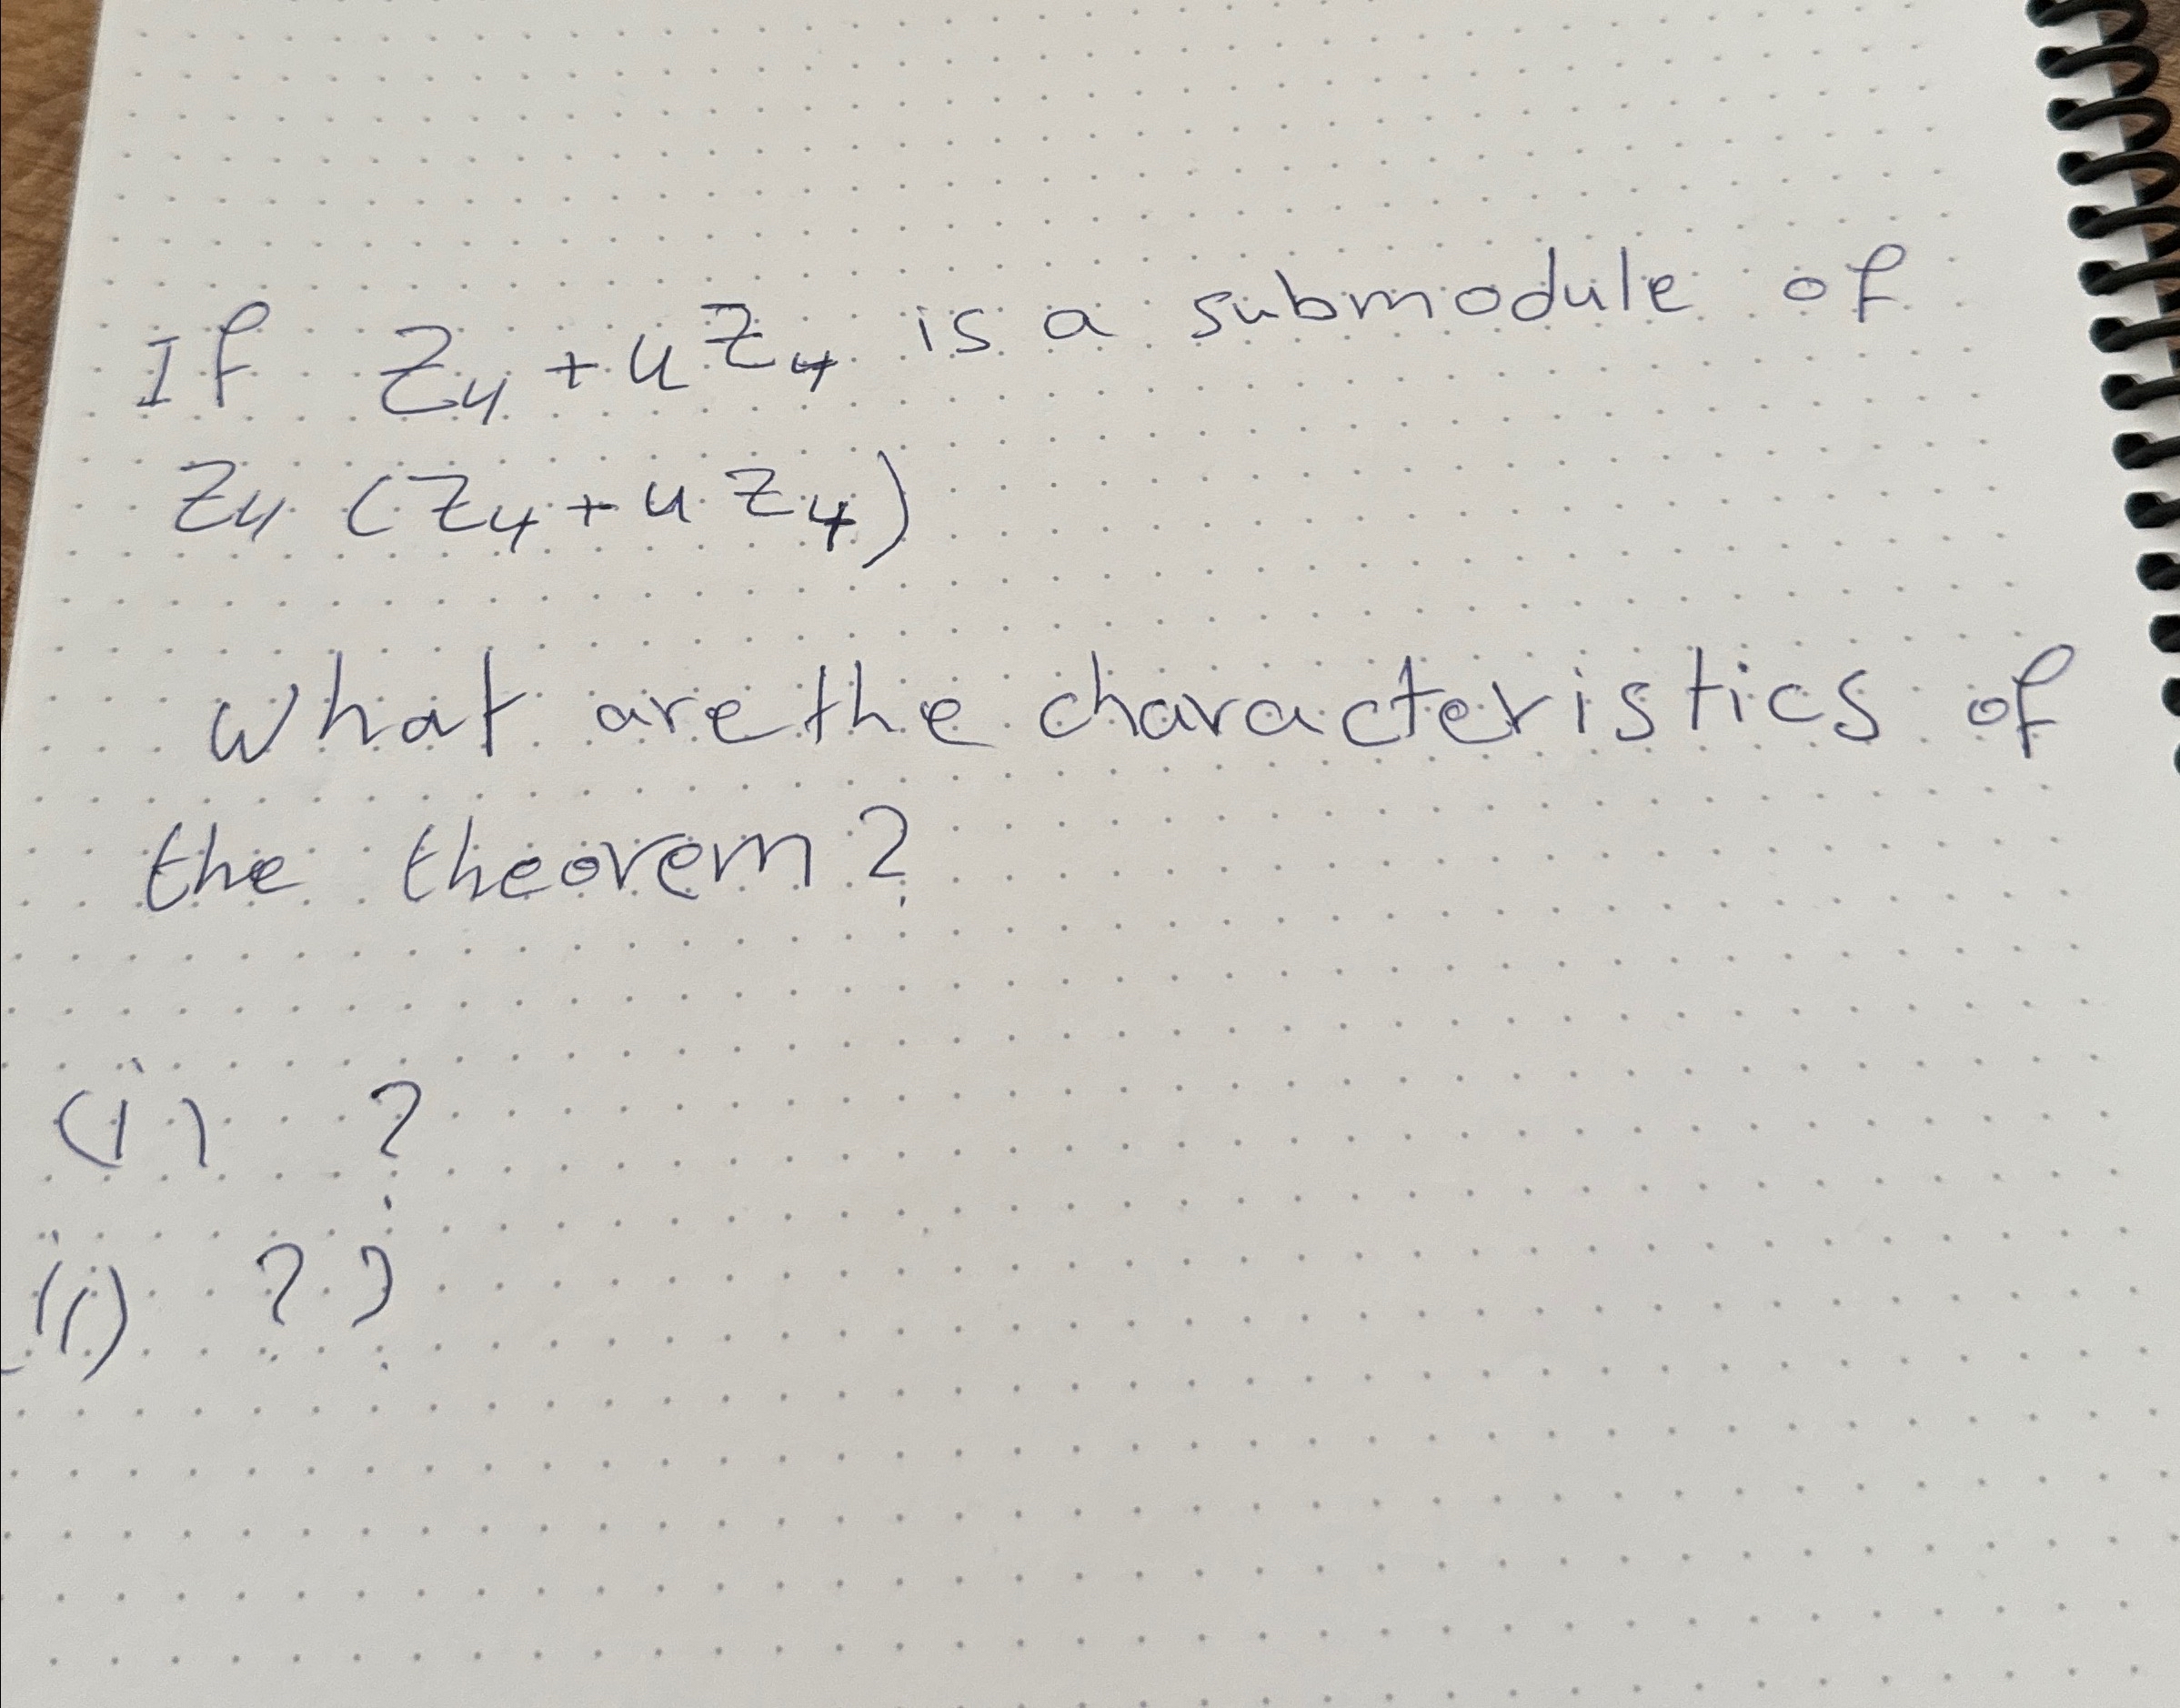 If Z₄ + u Z₄ is a submodule of
Z₄ (Z₄ + u Z₄)
what are the characteristics of
the theorem?
(i) ?
(ii) ??